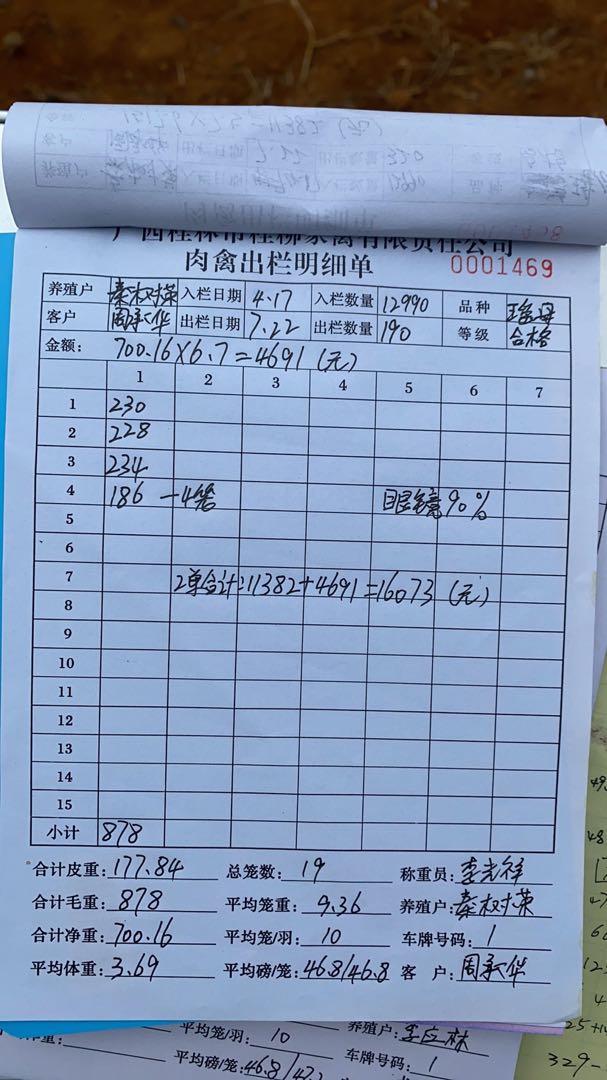 广西桂林市桂柳家禽有限责任公司
肉禽出栏明细单 0001469
养殖户 秦树荣 入栏日期 4.17 入栏数量 12990 品种
客户 周承华 出栏日期 7.22 出栏数量 190 等级 合格
金额: 700.16×6.7=4691(元)
1 2 3 4 5 6 7
1 230
2 228
3 234
4 186 —4笼 眼镜90%
5
6
7 2单合计:11382+4691=16073(元)
8
9
10
11
12
13
14
15
小计 878
合计皮重: 177.84 总笼数: 19 称重员: 李光祥
合计毛重: 878 平均笼重: 9.36 养殖户: 秦树荣
合计净重: 700.16 平均笼/羽: 10 车牌号码: 1
平均体重: 3.69 平均磅/笼: 46.8/46.8 客户: 周承华
平均笼/羽: 10 养殖户: 李应林
平均磅/笼: 车牌号码: 1